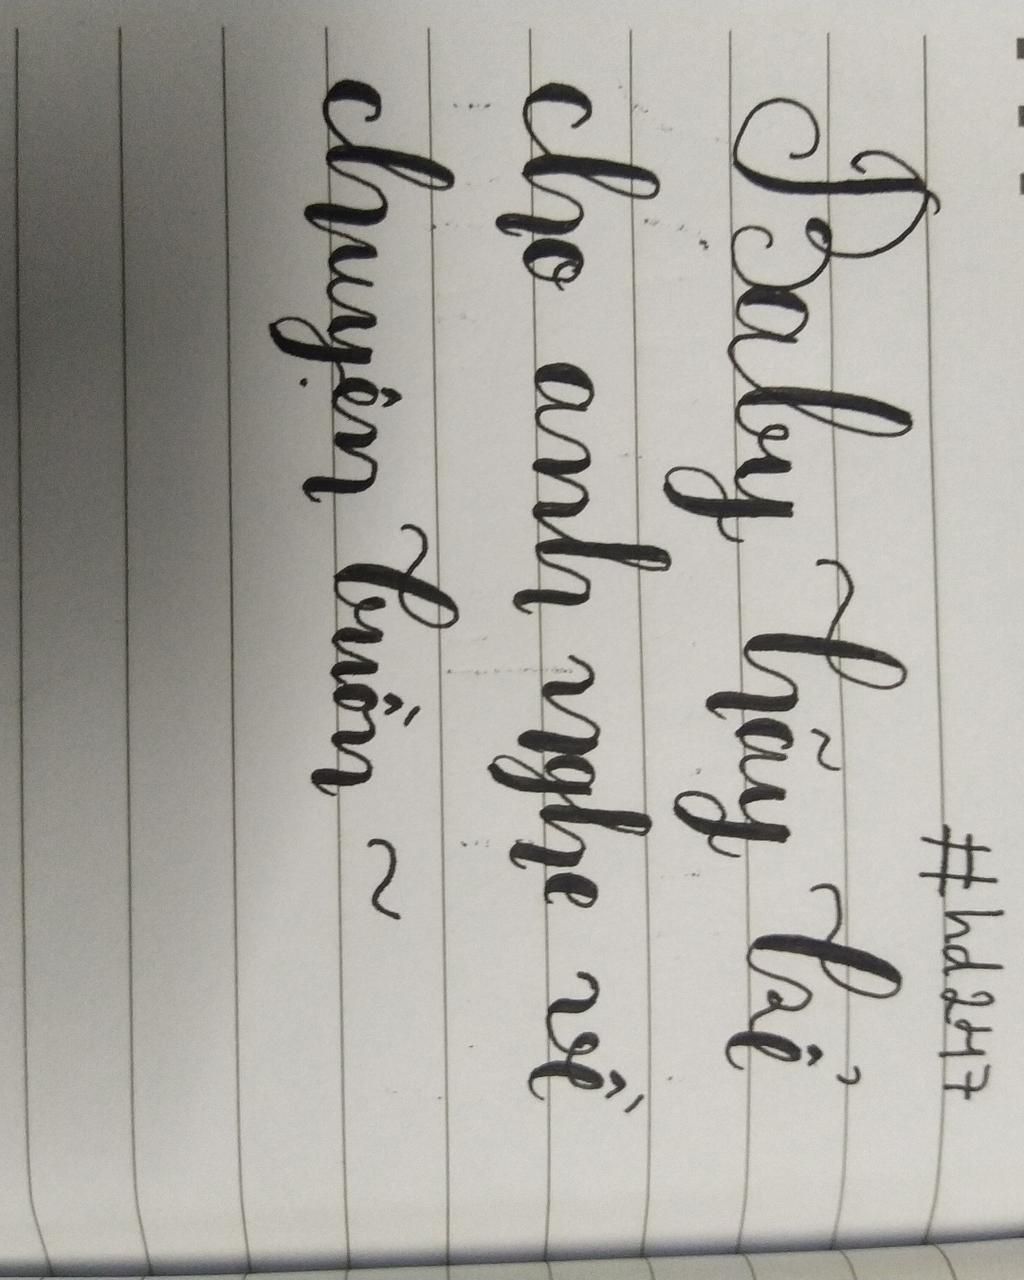 #hd247
Baby hãy kể
cho anh nghe về
chuyện buồn ~